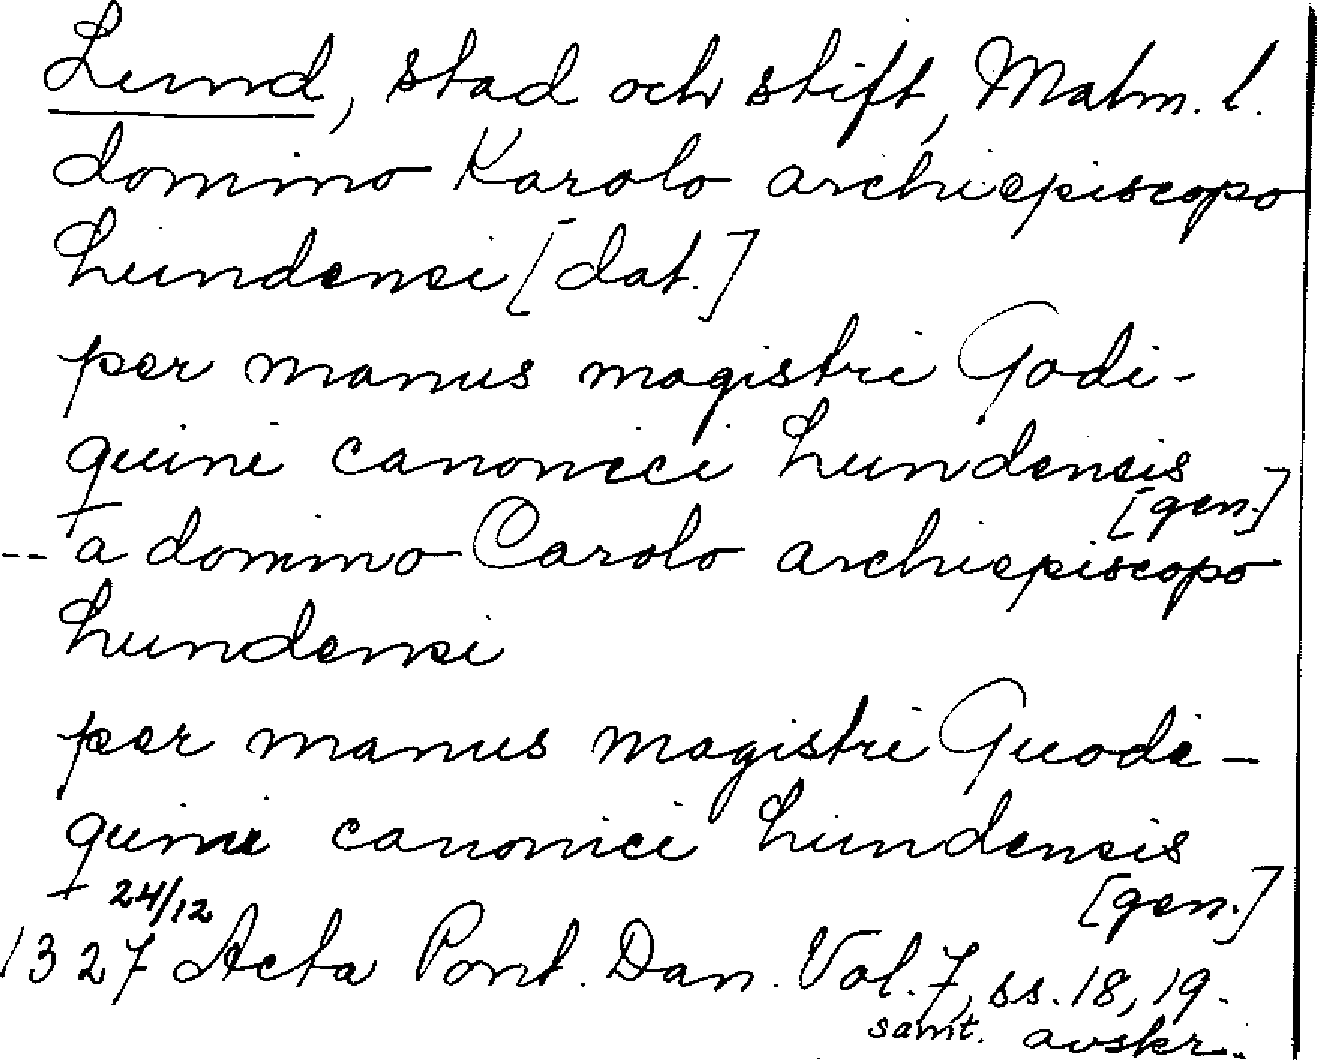 Lund, stad och stift, Malm. l.
domino Karolo archiepiscopo
Lundensi [dat.]
per manus magistri Godi-
quini canonici Lundensis
[gen.]
-- a domino Carolo archiepiscopo
Lundensi
per manus magistri Guodi-
quini canonici Lundensis
[gen.]
24/12
1327 Acta Pont. Dan. Vol. 7, ss. 18, 19.
samt. avskr..